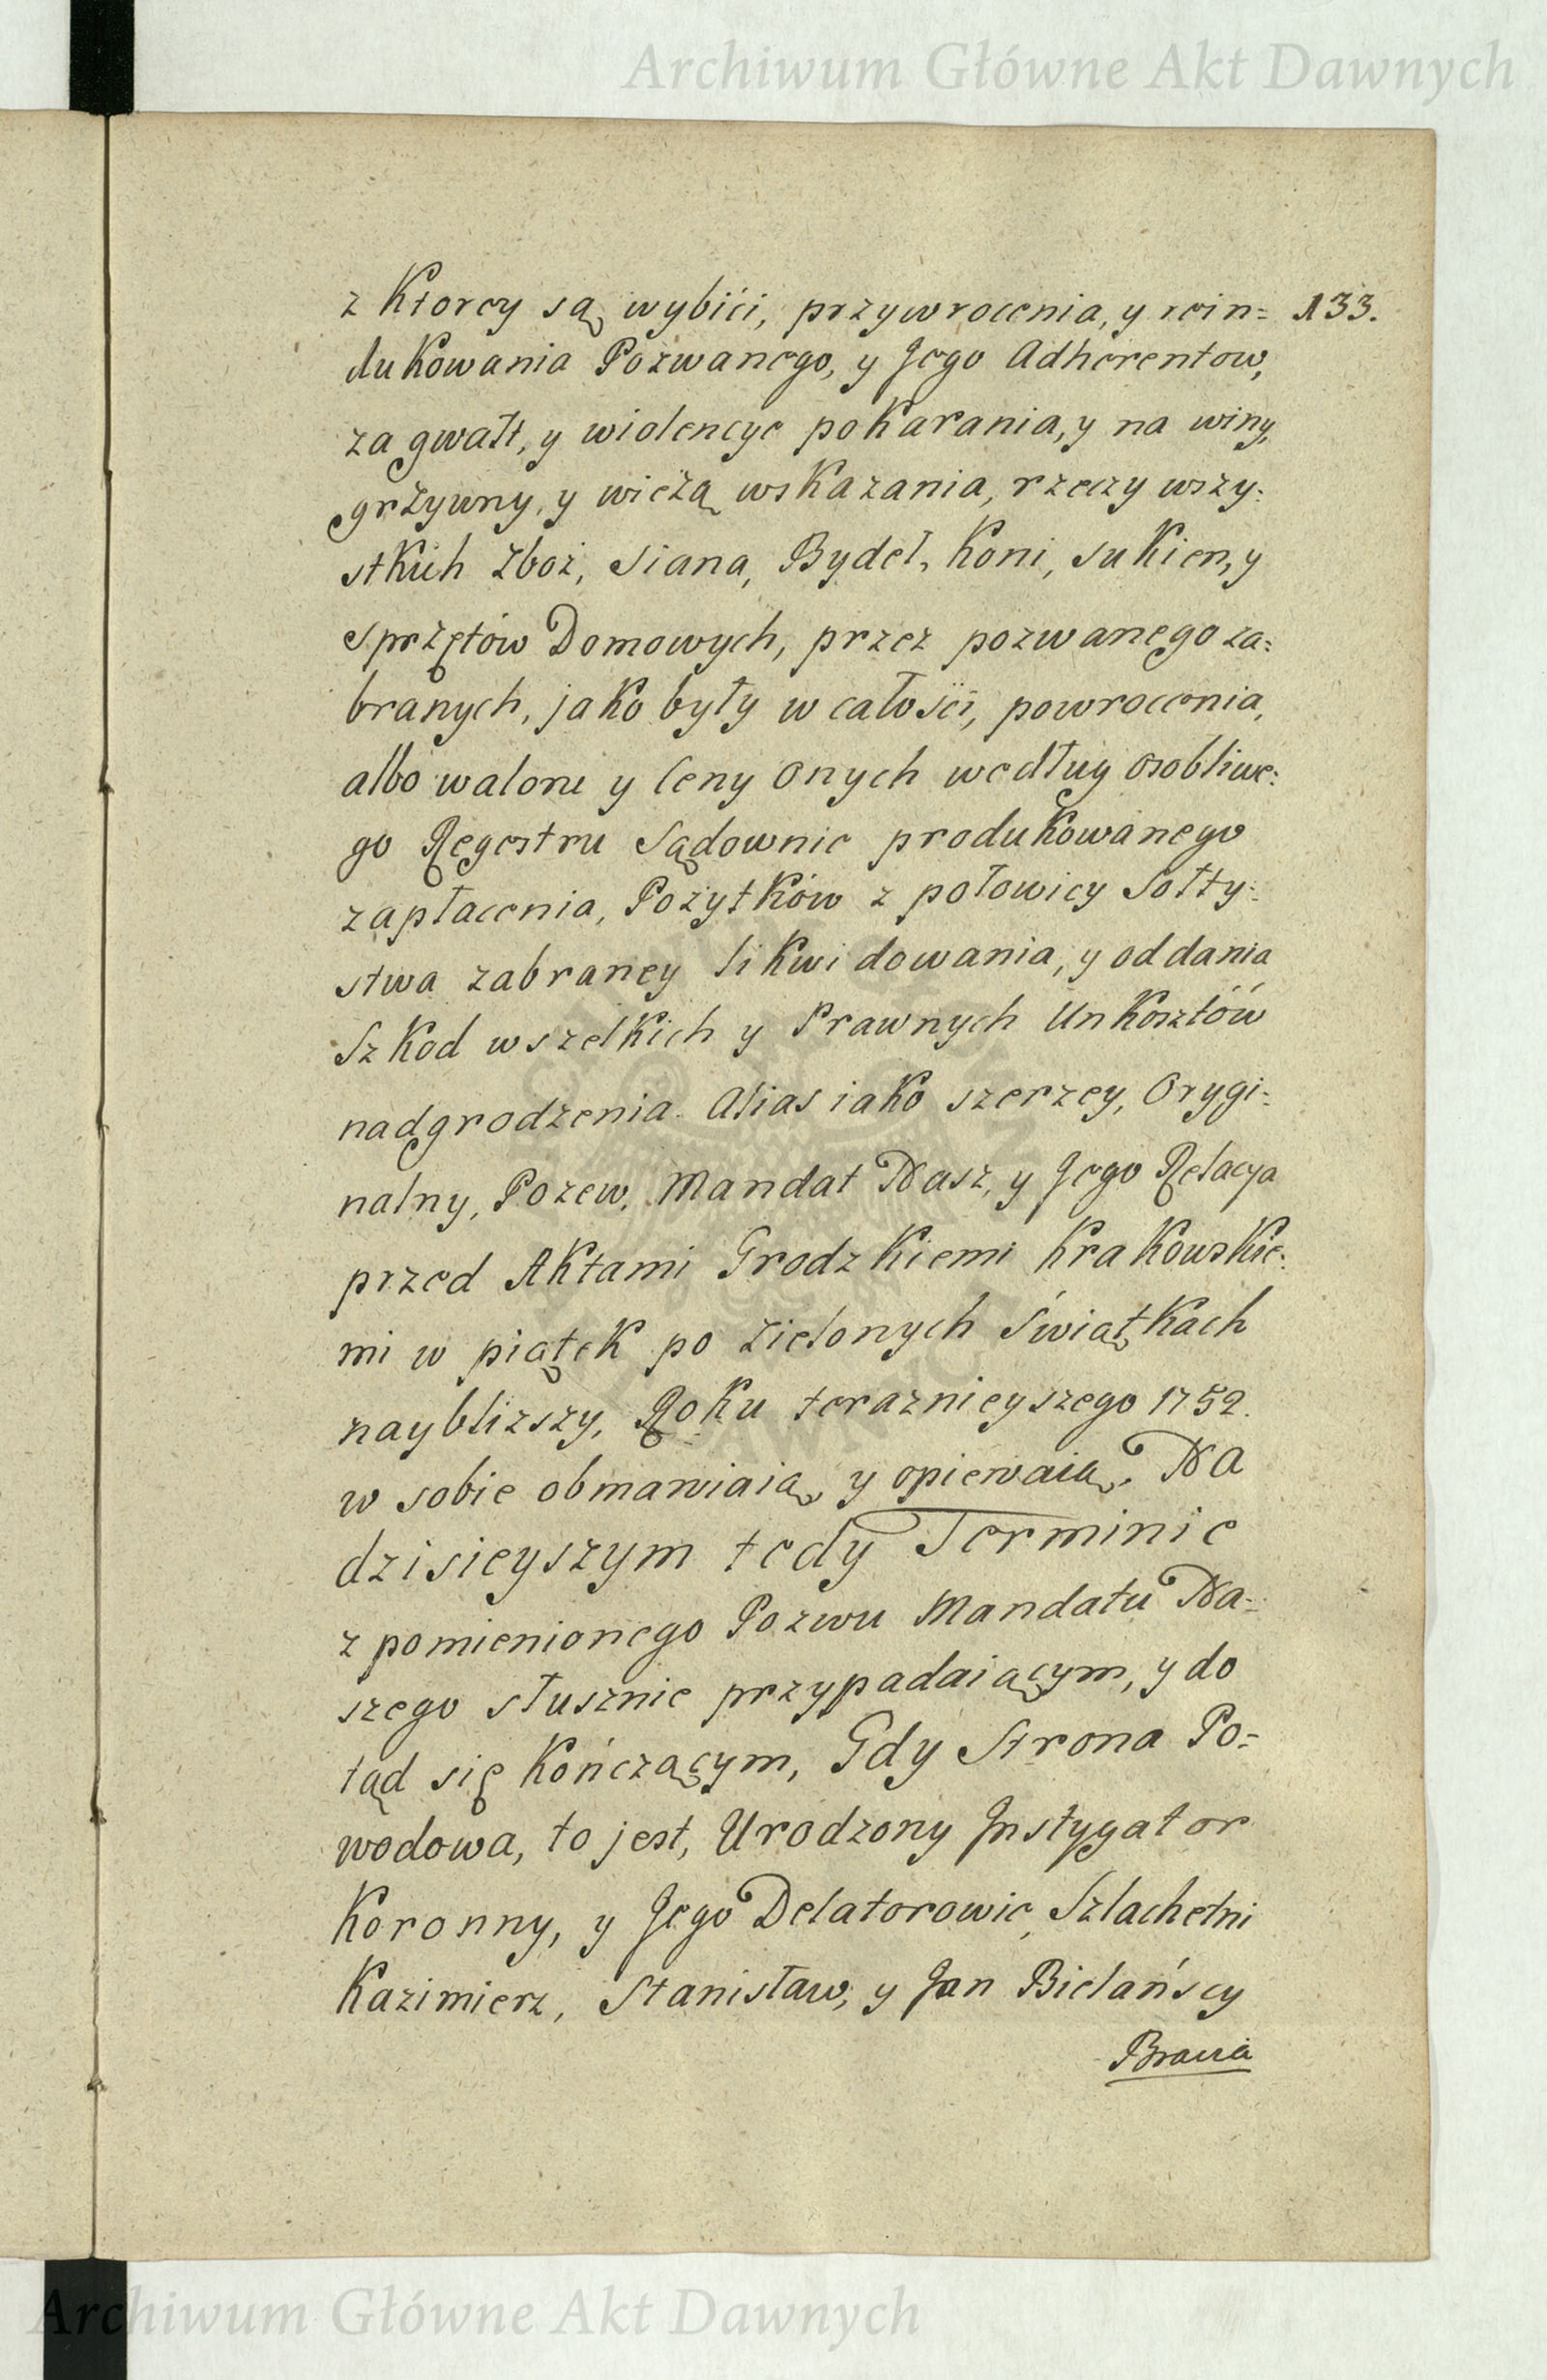 Archiwum Główne Akt Dawnych
z Ktorey są wybići, przywrocenia, y rein= 133.
dukowania Pozwanego, y Jego Adherentow,
za gwałt, y wiolencye pokarania, y na winy,
grzywny, y wieżą wskazania, rzeczy wszy:
stkich Zboż, Siana, Bydeł, Koni, sukien, y
sprzętów Domowych, przez pozwanego za:
branych, jako były w całości, powrocenia,
albo waloru y Ceny onych według osobliwe:
go Regestru Sądownie produkowanego
zapłacenia, Pożytków z połowicy Sołty:
stwa zabraney likwidowania, y oddania
Szkod wszelkich y Prawnych Unkosztów
nadgrodzenia. Alias iako szerzey, Orygi:
nalny, Pozew, Mandat Nasz, y Jego Relacya
przed Aktami Grodzkiemi Krakowskie:
mi w piątek po Zielonych Świątkach
nayblizszy, Roku teraznieyszego 1752.
w sobie obmawiaią, y opiewaią. Na
dzisieyszym tedy Terminie
z pomienionego Pozwu Mandatu Na=
szego słusznie przypadaiącym, y do
tąd się kończącym, Gdy Strona Po=
wodowa, to jest, Urodzony Instygator
Koronny, y Jego Delatorowie, Szlachetni
Kazimierz, Stanisław, y Jan Bielańscy
Bracia
Archiwum Główne Akt Dawnych